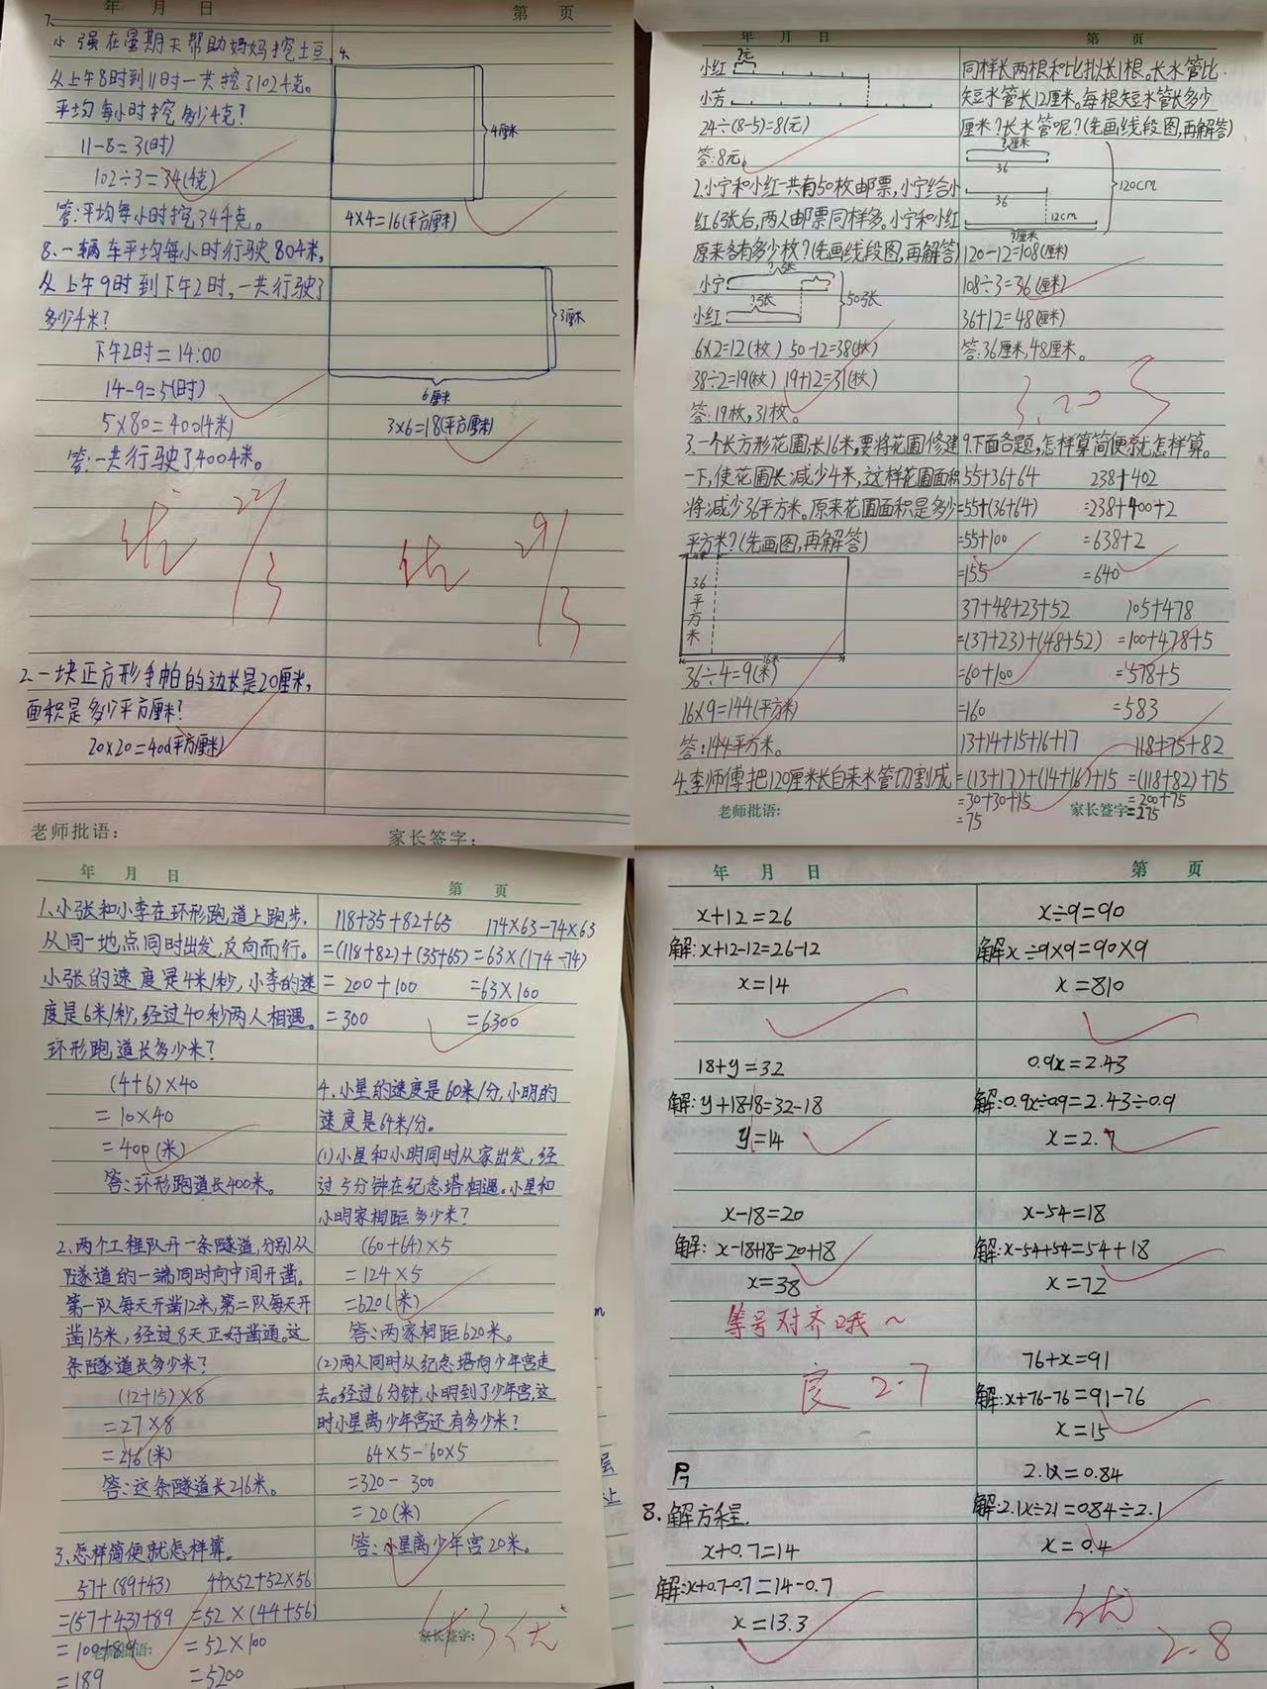 年 月 日
第 页
7、
小强在星期天帮助妈妈挖土豆,
从上午8时到11时一共挖了102千克。
平均每小时挖多少千克?
11-8=3(时)
102÷3=34(千克)
答:平均每小时挖34千克。
8、一辆车平均每小时行驶80千米,
从上午9时到下午2时,一共行驶了
多少千米?
下午2时=14:00
14-9=5(时)
5×80=400(千米)
答:一共行驶了400千米。
优 22/3
2、一块正方形手帕的边长是20厘米,
面积是多少平方厘米?
20×20=400(平方厘米)
4厘米
4×4=16(平方厘米)
3厘米
6厘米
3×6=18(平方厘米)
优 29/3
老师批语:
家长签字:
年 月 日
第 页
小红
小芳
24÷(8-5)=8(元)
答:8元。
2.小宁和小红一共有50枚邮票,小宁给小
红6张后,两人邮票同样多。小宁和小红
原来各有多少枚?(先画线段图,再解答)
小宁
小红
50张
6×2=12(枚) 50-12=38(枚)
38÷2=19(枚) 19+12=31(枚)
答:19枚,31枚。
3.一个长方形花圃,长16米,要将花圃修建
一下,使花圃长减少4米,这样花圃面积
将减少36平方米。原来花圃面积是多少
平方米?(先画图,再解答)
36平方米
16米
36÷4=9(米)
16×9=144(平方米)
答:144平方米。
4.李师傅把120厘米长自来水管切割成
同样长两根和比拟长1根。长水管比
短水管长12厘米。每根短水管长多少
厘米?长水管呢?(先画线段图,再解答)
?厘米
36
36
12cm
120cm
?厘米
120-12=108(厘米)
108÷3=36(厘米)
36+12=48(厘米)
答:36厘米,48厘米。
3.20
9.下面各题,怎样算简便就怎样算。
55+36+64 238+402
=55+(36+64) =238+400+2
=55+100 =638+2
=155 =640
37+48+23+52 105+478
=(37+23)+(48+52) =100+478+5
=60+100 =578+5
=160 =583
13+14+15+16+17 118+75+82
=(13+17)+(14+16)+15 =(118+82)+75
=30+30+15 =200+75
=75 =275
老师批语:
家长签字:
年 月 日
第 页
1、小张和小李在环形跑道上跑步,
从同一地点同时出发,反向而行。
小张的速度是4米/秒,小李的速
度是6米/秒,经过40秒两人相遇。
环形跑道长多少米?
(4+6)×40
=10×40
=400(米)
答:环形跑道长400米。
2、两个工程队开一条隧道,分别从
隧道的一端同时向中间开凿。
第一队每天开凿12米,第二队每天开
凿15米,经过8天正好凿通。这
条隧道长多少米?
(12+15)×8
=27×8
=216(米)
答:这条隧道长216米。
3、怎样简便就怎样算。
57+(89+43) 44×52+52×56
=(57+43)+89 =52×(44+56)
=100+89 =52×100
=189 =5200
118+35+82+65 174×63-74×63
=(118+82)+(35+65) =63×(174-74)
=200+100 =63×100
=300 =6300
4.小星的速度是60米/分,小明的
速度是64米/分。
(1)小星和小明同时从家出发,经
过5分钟在纪念塔相遇。小星和
小明家相距多少米?
(60+64)×5
=124×5
=620(米)
答:两家相距620米。
(2)两人同时从纪念塔向少年宫走
去。经过6分钟,小明到了少年宫,这
时小星离少年宫还有多少米?
64×5-60×5
=320-300
=20(米)
答:小星离少年宫20米。
家长签字:
优
年 月 日
第 页
x+12=26
解:x+12-12=26-12
x=14
18+y=32
解:y+18-18=32-18
y=14
x-18=20
解:x-18+18=20+18
x=38
等号对齐哦~
良 2.7
8.解方程.
x+0.7=14
解:x+0.7-0.7=14-0.7
x=13.3
x÷9=90
解x÷9×9=90×9
x=810
0.9x=2.43
解:0.9x÷0.9=2.43÷0.9
x=2.7
x-54=18
解:x-54+54=54+18
x=72
76+x=91
解:x+76-76=91-76
x=15
2.1x=0.84
解:2.1x÷21=0.84÷2.1
x=0.4
优
2.8